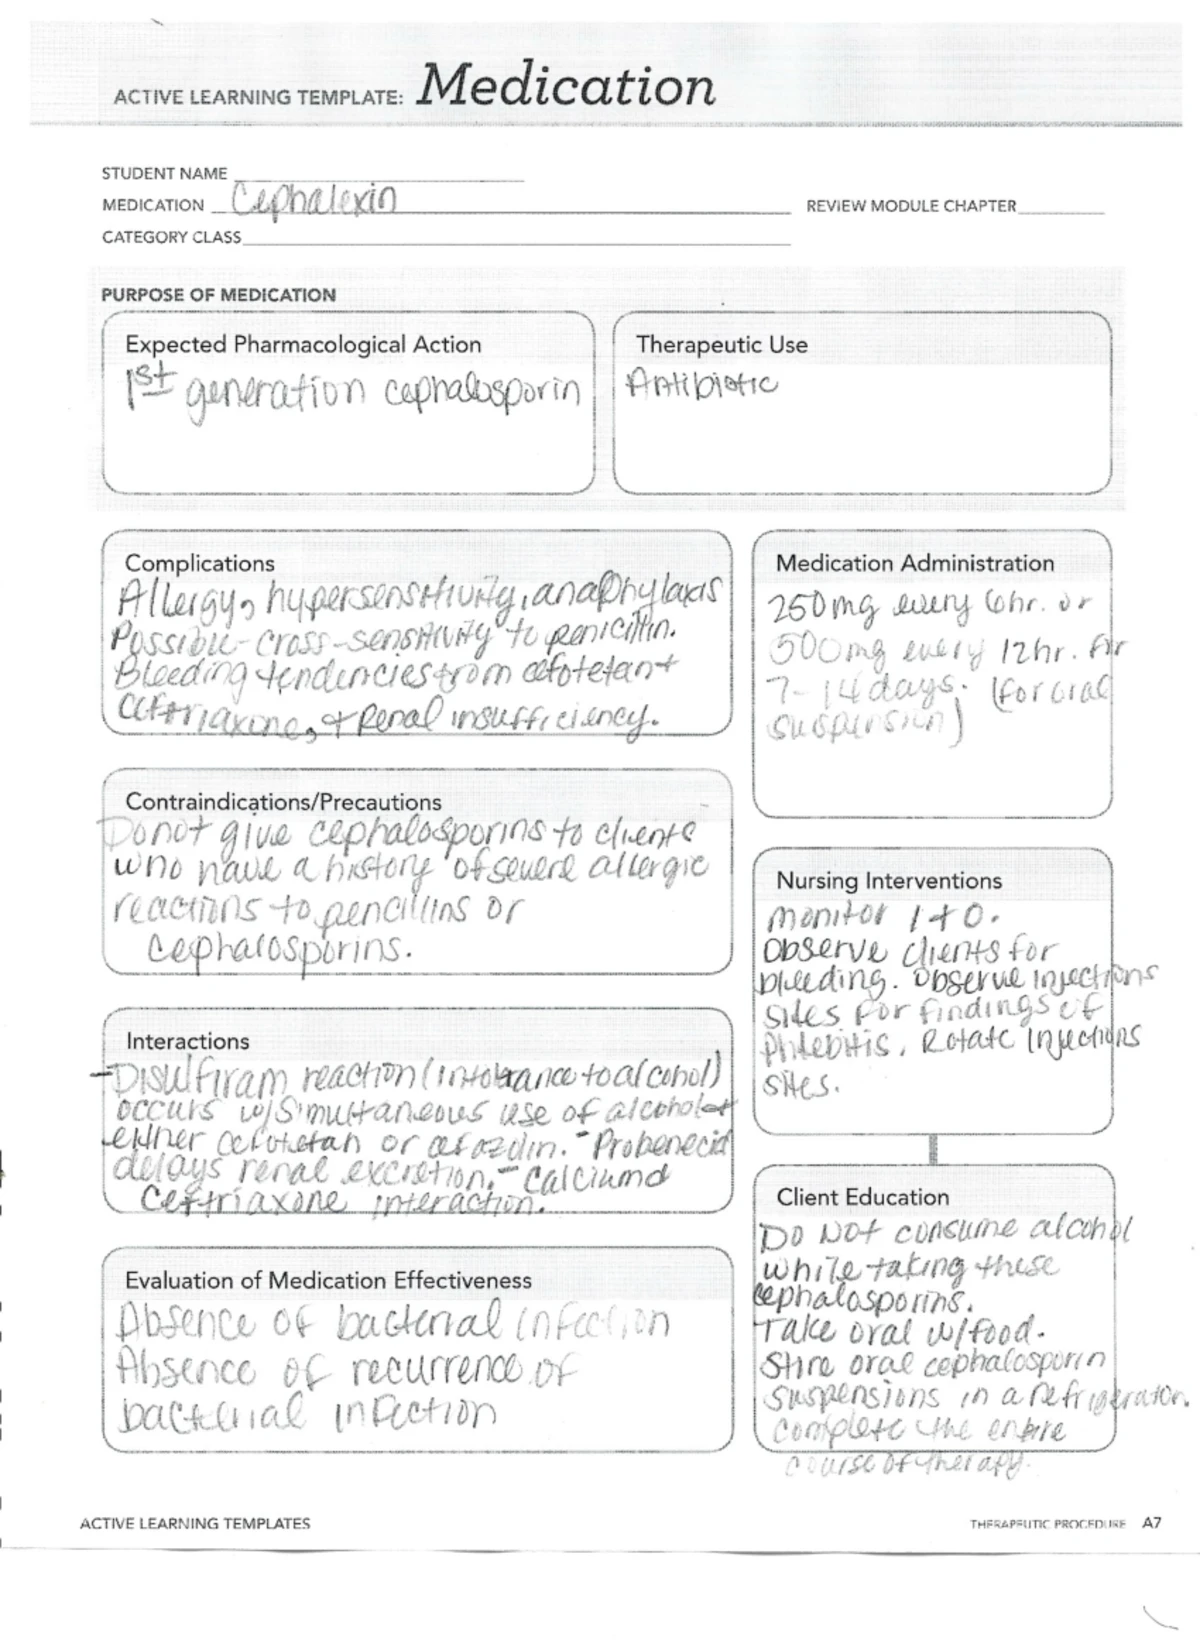 ACTIVE LEARNING TEMPLATE: Medication
STUDENT NAME
MEDICATION Cephalexin
REVIEW MODULE CHAPTER
CATEGORY CLASS
PURPOSE OF MEDICATION
Expected Pharmacological Action
1st generation cephalosporin
Therapeutic Use
Antibiotic
Complications
Allergy, hypersensitivity, anaphylaxis
Possible-cross-sensitivity to penicillin.
Bleeding tendencies from cefotetan +
Ceftriaxone, + Renal insufficiency.
Medication Administration
250mg every 6hr. or
500mg every 12hr. for
7-14 days. (for oral
suspension)
Contraindications/Precautions
Do not give cephalosporins to clients
who have a history of severe allergic
reactions to pencillins or
cephalosporins.
Nursing Interventions
monitor I + O.
Observe clients for
bleeding. Observe injections
sites for findings of
Phlebitis. Rotate Injections
sites.
Interactions
-Disulfiram reaction (intolerance to alcohol)
occurs w/simultaneous use of alcohol +
either cefotetan or cefazolin. - Probenecid
delays renal excretion. - Calcium
Ceftriaxone interaction.
Client Education
Do NOT consume alcohol
while taking these
cephalosporins.
Take oral w/food.
Store oral cephalosporin
suspensions in a refrigerator.
complete the entire
course of therapy.
Evaluation of Medication Effectiveness
Absence of bacterial infection
Absence of recurrence of
bacterial infection
ACTIVE LEARNING TEMPLATES
THERAPEUTIC PROCEDURE A7